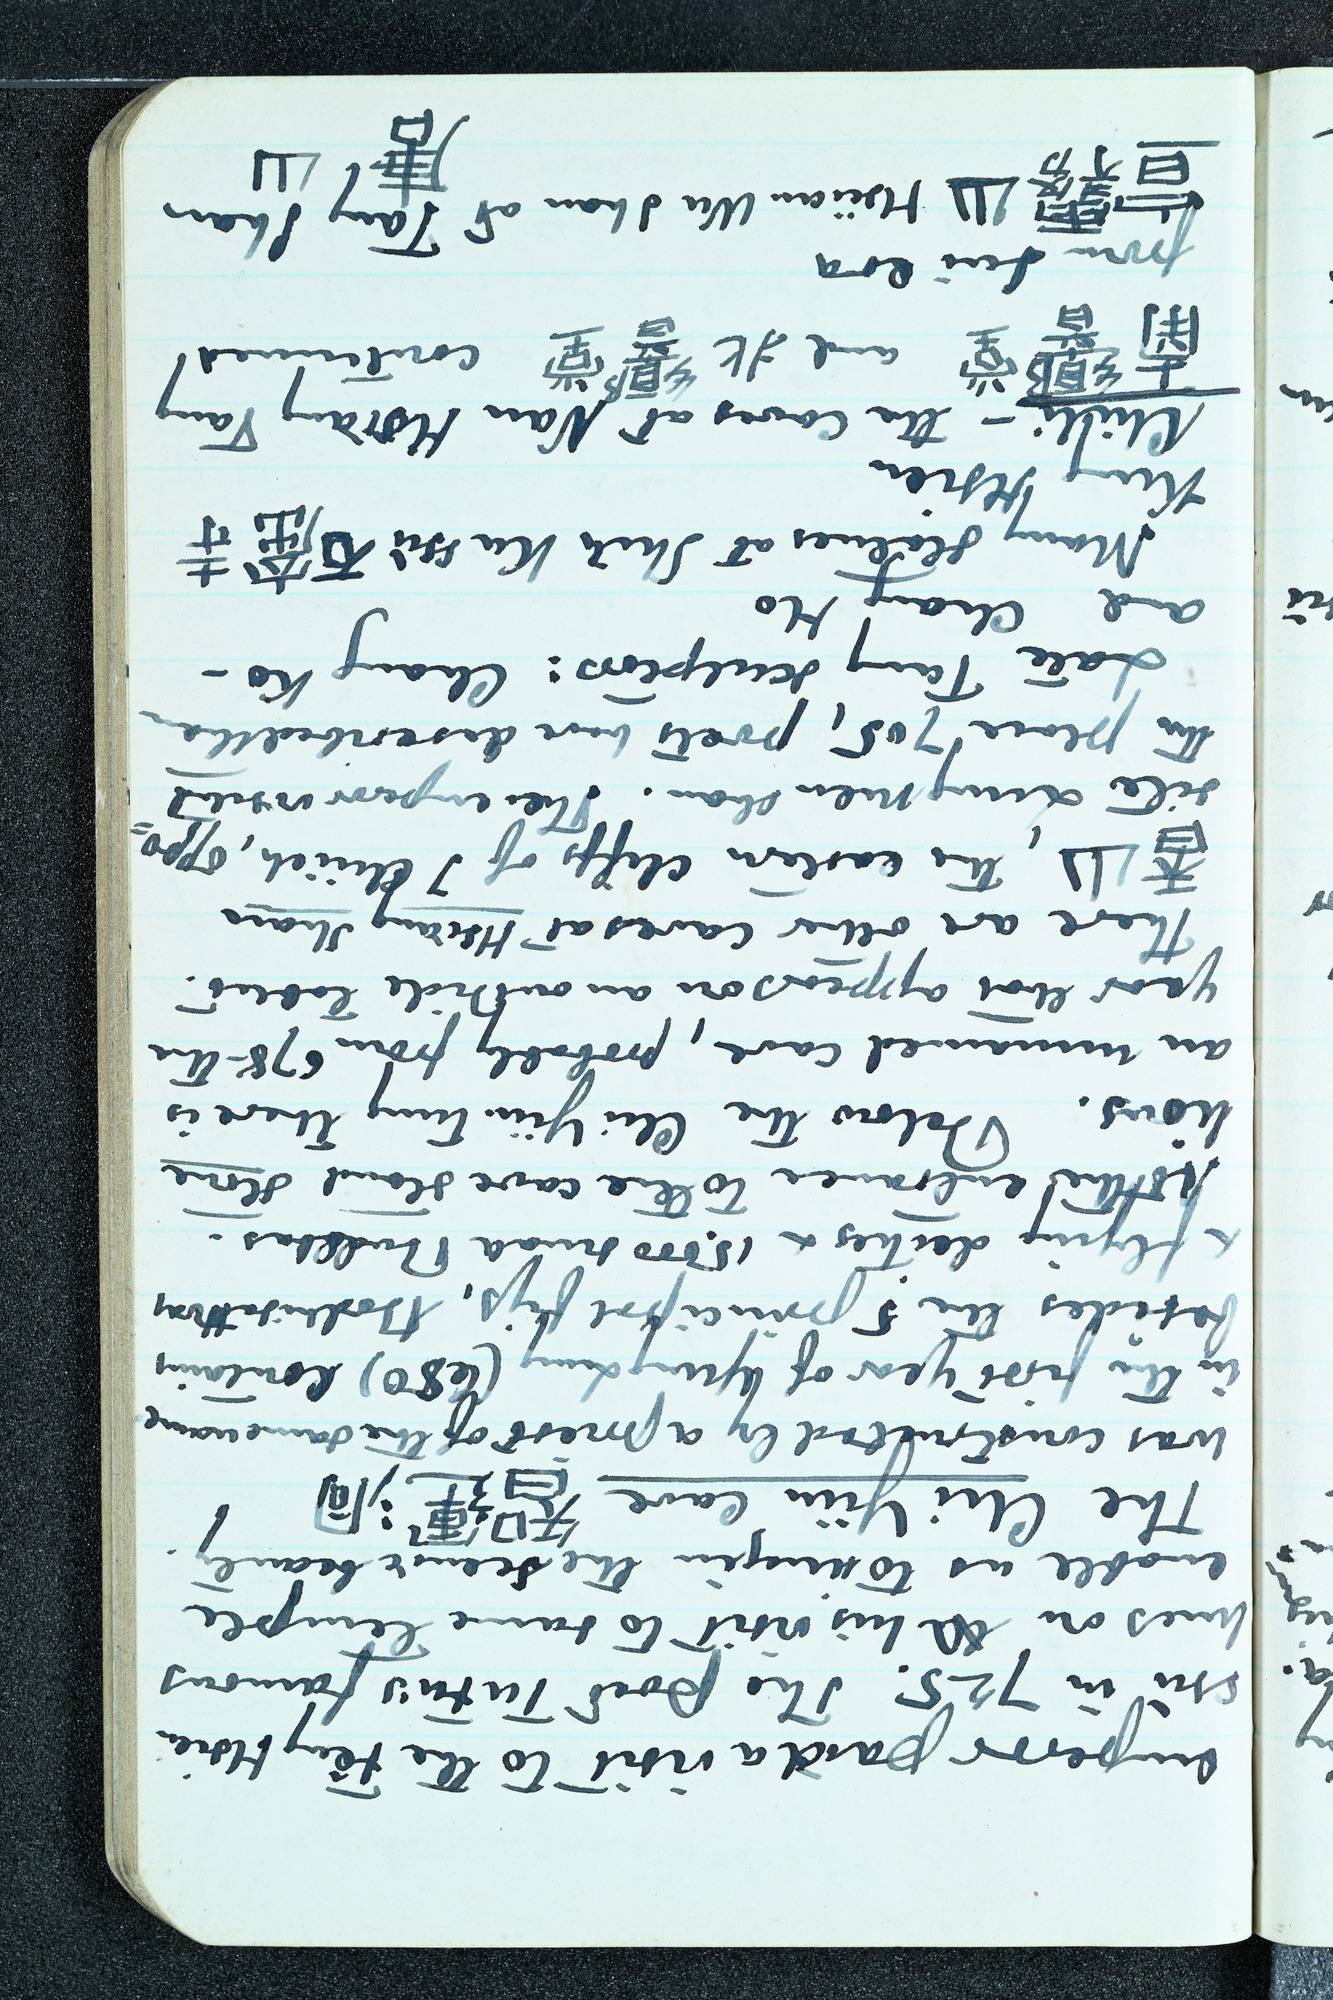 emperor paid a visit to the Fêng Hsien
ssŭ in 725. The poet Tu Fu's famous
lines on his visit to same temple
enable us to imagin the scenic beauty.
The Chi Yün Cave 智運洞
was constructed by a priest of the same name
in the first year of Yung Lung (680) contains
besides the 5 principal figs, Bodhisattvas
& flying deities & 15.000 small Buddhas.
At the entrance to the cave stand stone
lions. Below the Chi Yün Tung there is
an unnamed cave, probably from 678 - the
year that appears on an outside tablet.
There are other caves at Hsiang Shan
香山, the eastern cliffs of I Chüeh, oppo=
site Lung Men Shan. The emperor visited
the place 705, poets have described the
Late Tang sculptors: Chang Ko-
and Chang Ho
Many statues at Shih Ku ssŭ 石窟寺
Kung Hsien
Chili - the caves at Nan Hsiang Tang
南響堂 and 北響堂 continued
from Sui era
宣霧山 Hsüan Wu Shan at Tang Shan
唐山